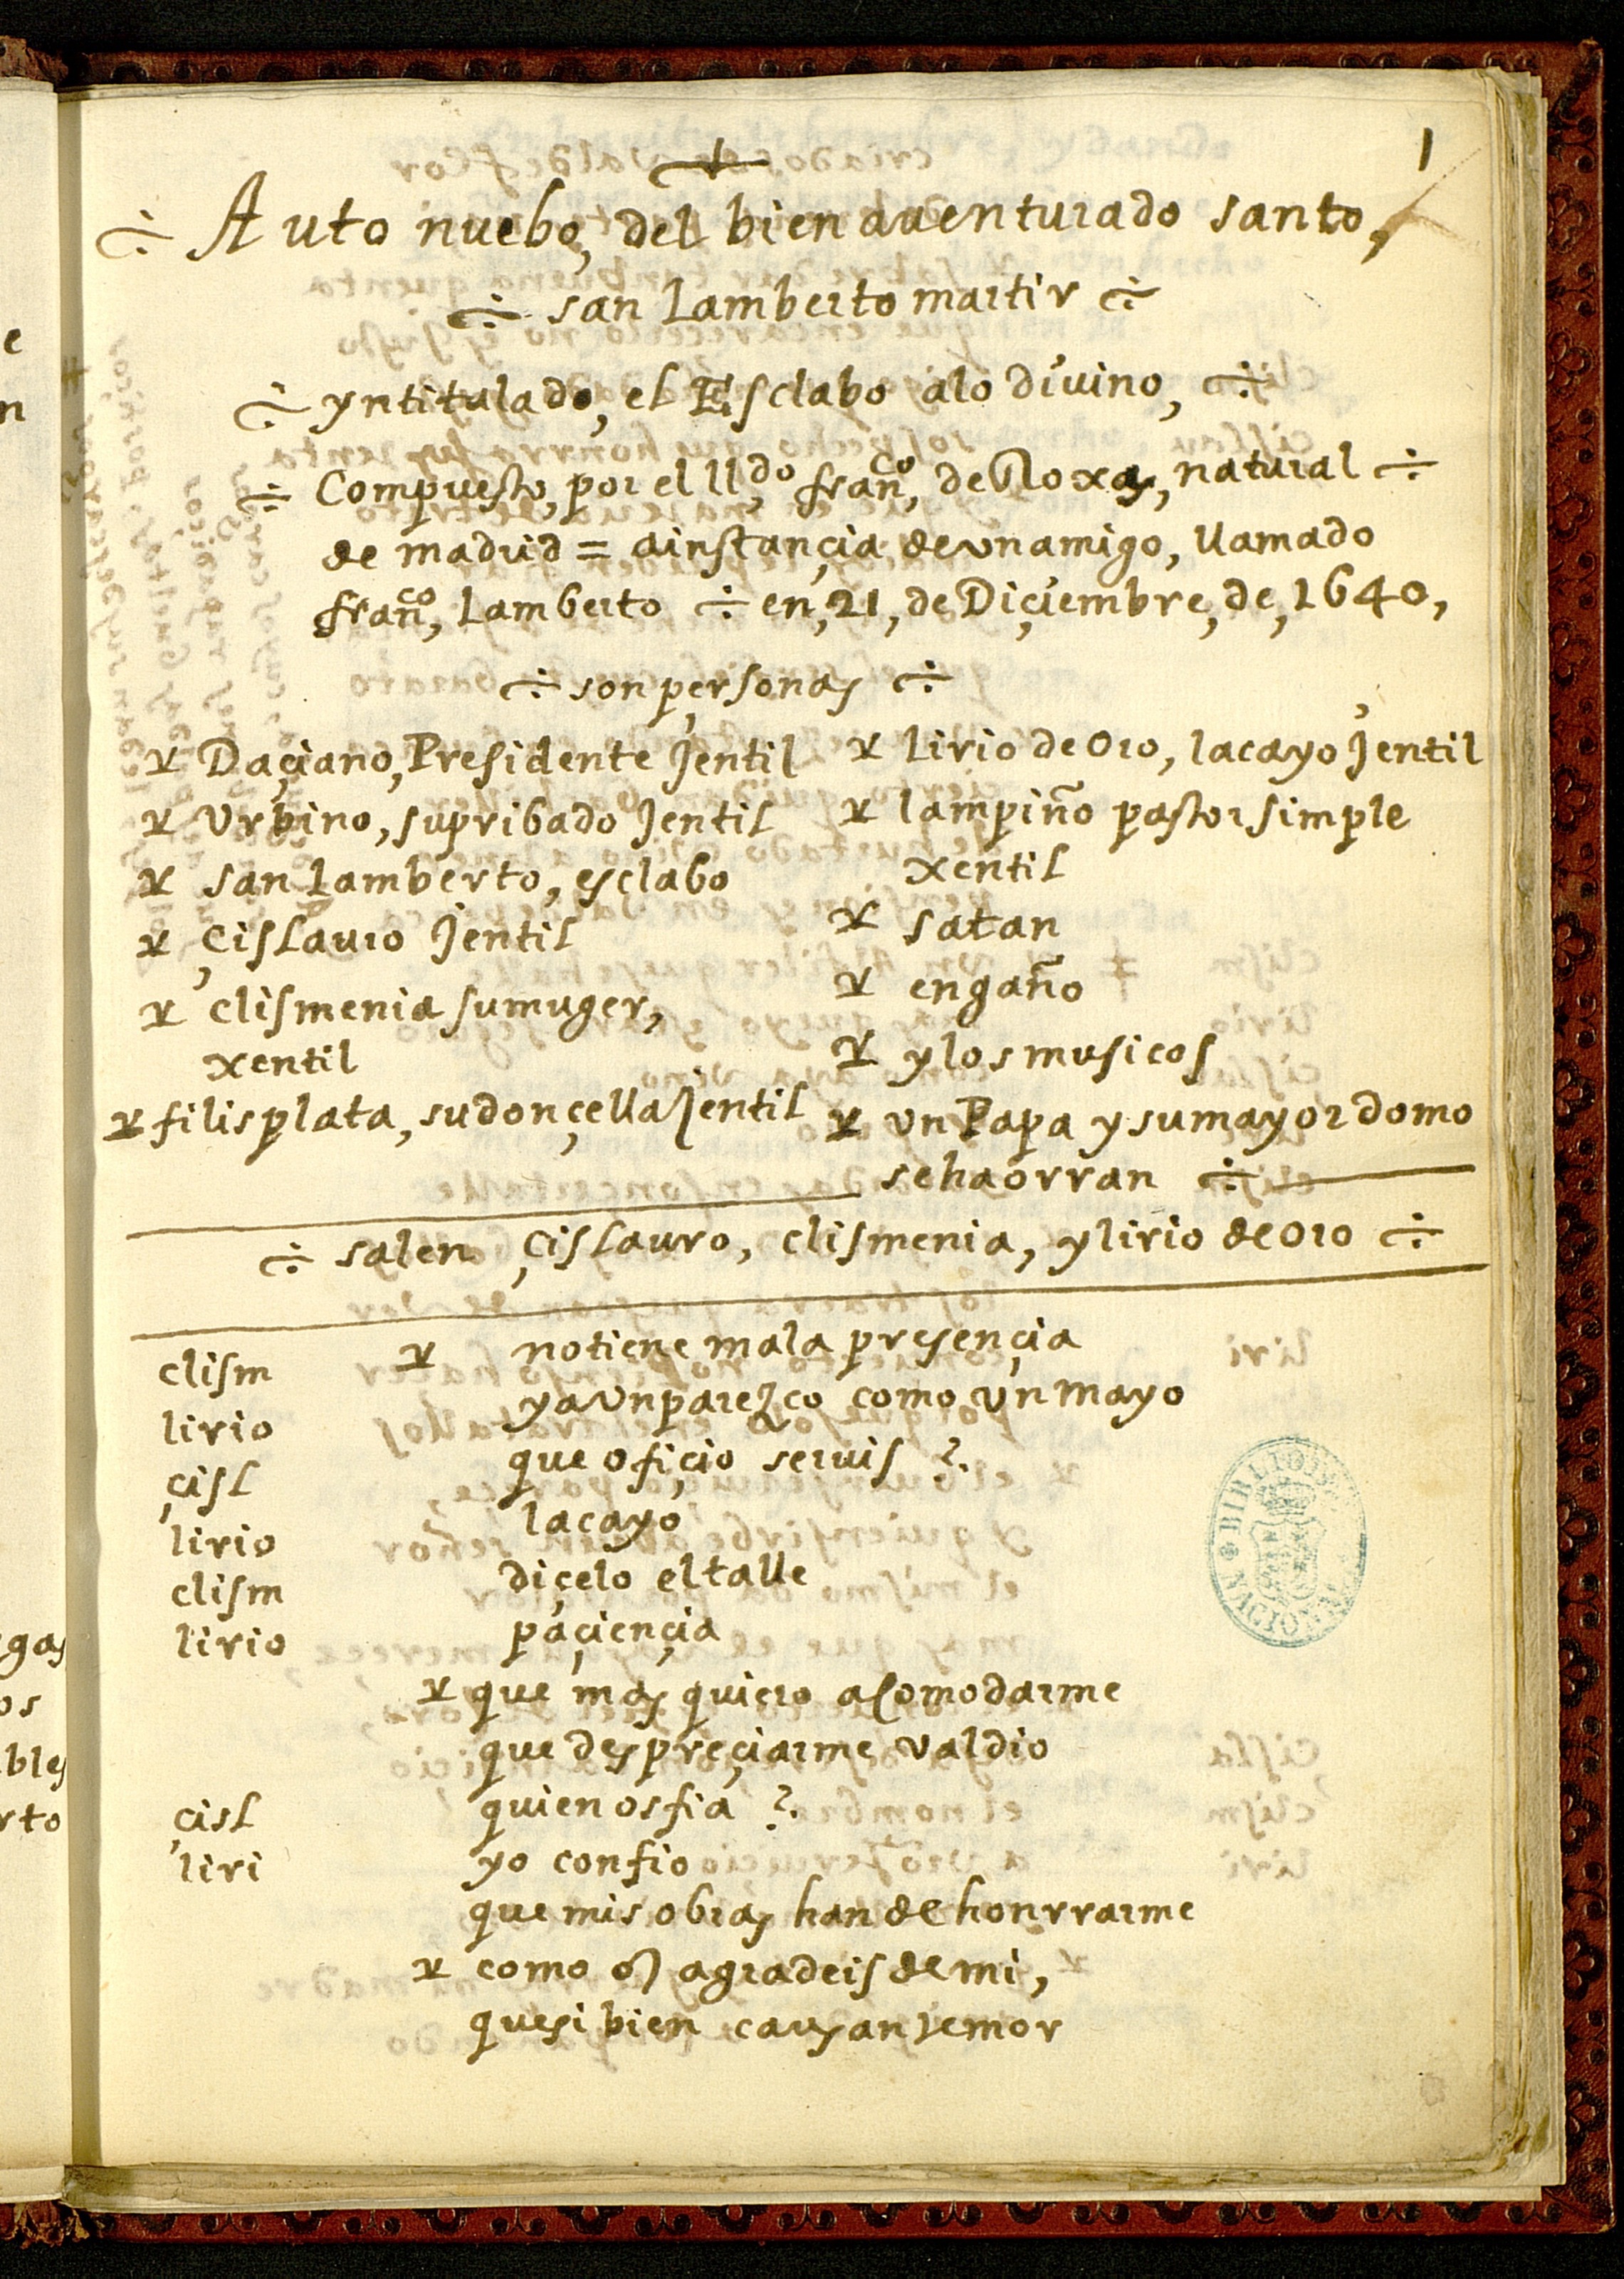 1
÷ Auto nuebo, del bienauenturado santo,
÷ san Lamberto martir ÷
÷ yntitulado, el Esclabo alo diuino, ÷
÷ Compuesto, por el llᵈᵒ franᶜᵒ, de Roxas, natural ÷
de madrid = a instançia de vn amigo, llamado
franᶜᵒ, Lamberto ÷ en, 21, de Diçiembre, de, 1640,
÷ son personas ÷
Daçiano, Presidente Jentil
Vrbino, supribado Jentil
san Lamberto, esclabo
Çislauro Jentil
clismenia sumuger,
xentil
filisplata, sudonçella Jentil
lirio de Oro, lacayo Jentil
lampiño pastor simple
xentil
satan
engaño
y los musicos
vn Papa y sumayordomo
sehaorran ÷
÷ salen Çislauro, clismenia, y lirio de oro ÷
clism notiene mala presençia
lirio ya vn parezco como vn mayo
çisl que ofiçio seruis ?
lirio lacayo
clism diçelo el talle
lirio paçiençia
que mas quiero acomodarme
que despreçiarme valdio
çisl quien os fia ?
liri yo confio
que mis obras han de honrrarme
como os agradeis de mi,
quesi bien causan temor
BIBLIOTECA NACIONAL
gas
os
bles
rto